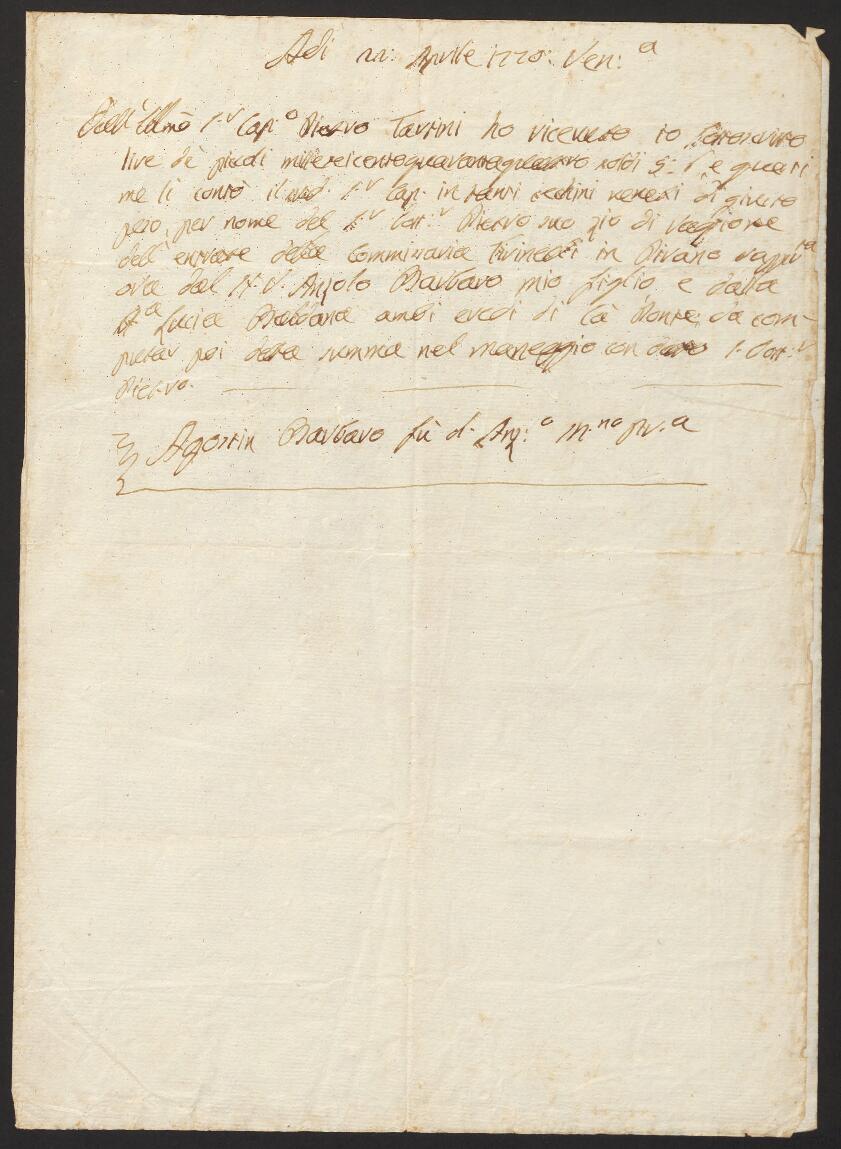 Adi 22: Aprile 1775: Ven:ª
Dall'Illmo S.r Cap.o Pietro Tartini ho ricevuto io sottoscritto
lire dè piccoli milleseicentoquarantaquattro soldi 5: e quali
me li contò il sud. S.r Cap. in tanti cechini veneti di giusto
peso, per nome del S.r Dott.r Pietro suo zio di raggione
dell'entrate della Commissaria in Pirano
dal N. V. Anzolo Barbaro mio figlio e dalla
N.a Lucia Baldana ambi eredi di Cà Donte, da com-
pietar poi detta summa nel maneggio con detto S. Dott.r
Pietro.
Agostin Barbaro fù d. Anz:o m.no pr.a